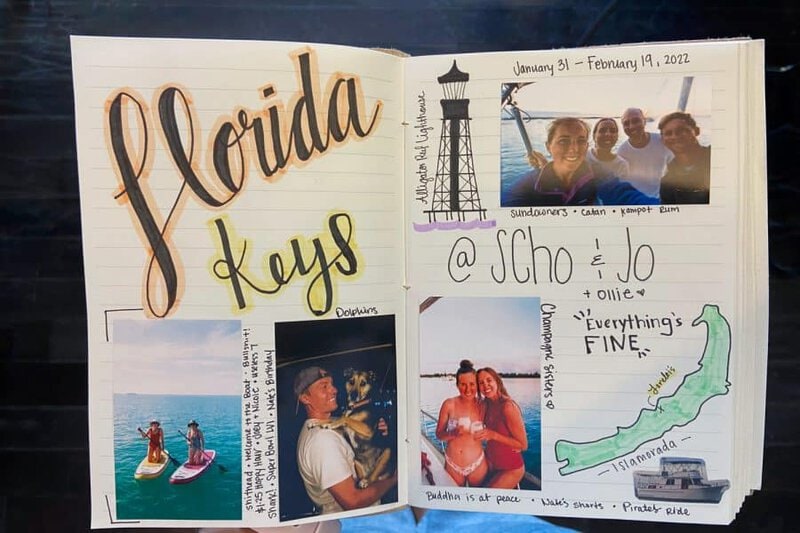 florida
Keys
Dolphins
shithead • Welcome to the Boat • Bullshit!
$1.25 Happy Hour • Joey + Nicole • useless 7
shark! • Super Bowl LVI • Nate's Birthday
January 31 – February 19, 2022
Alligator Reef Lighthouse
sundowners • catan • kampot rum
@ SCHO & JO
+ ollie ♥
Champagne sisters
"Everything's
FINE"
x
– Islamorada –
Buddha is at peace • Nate's shorts • Pirates Ride